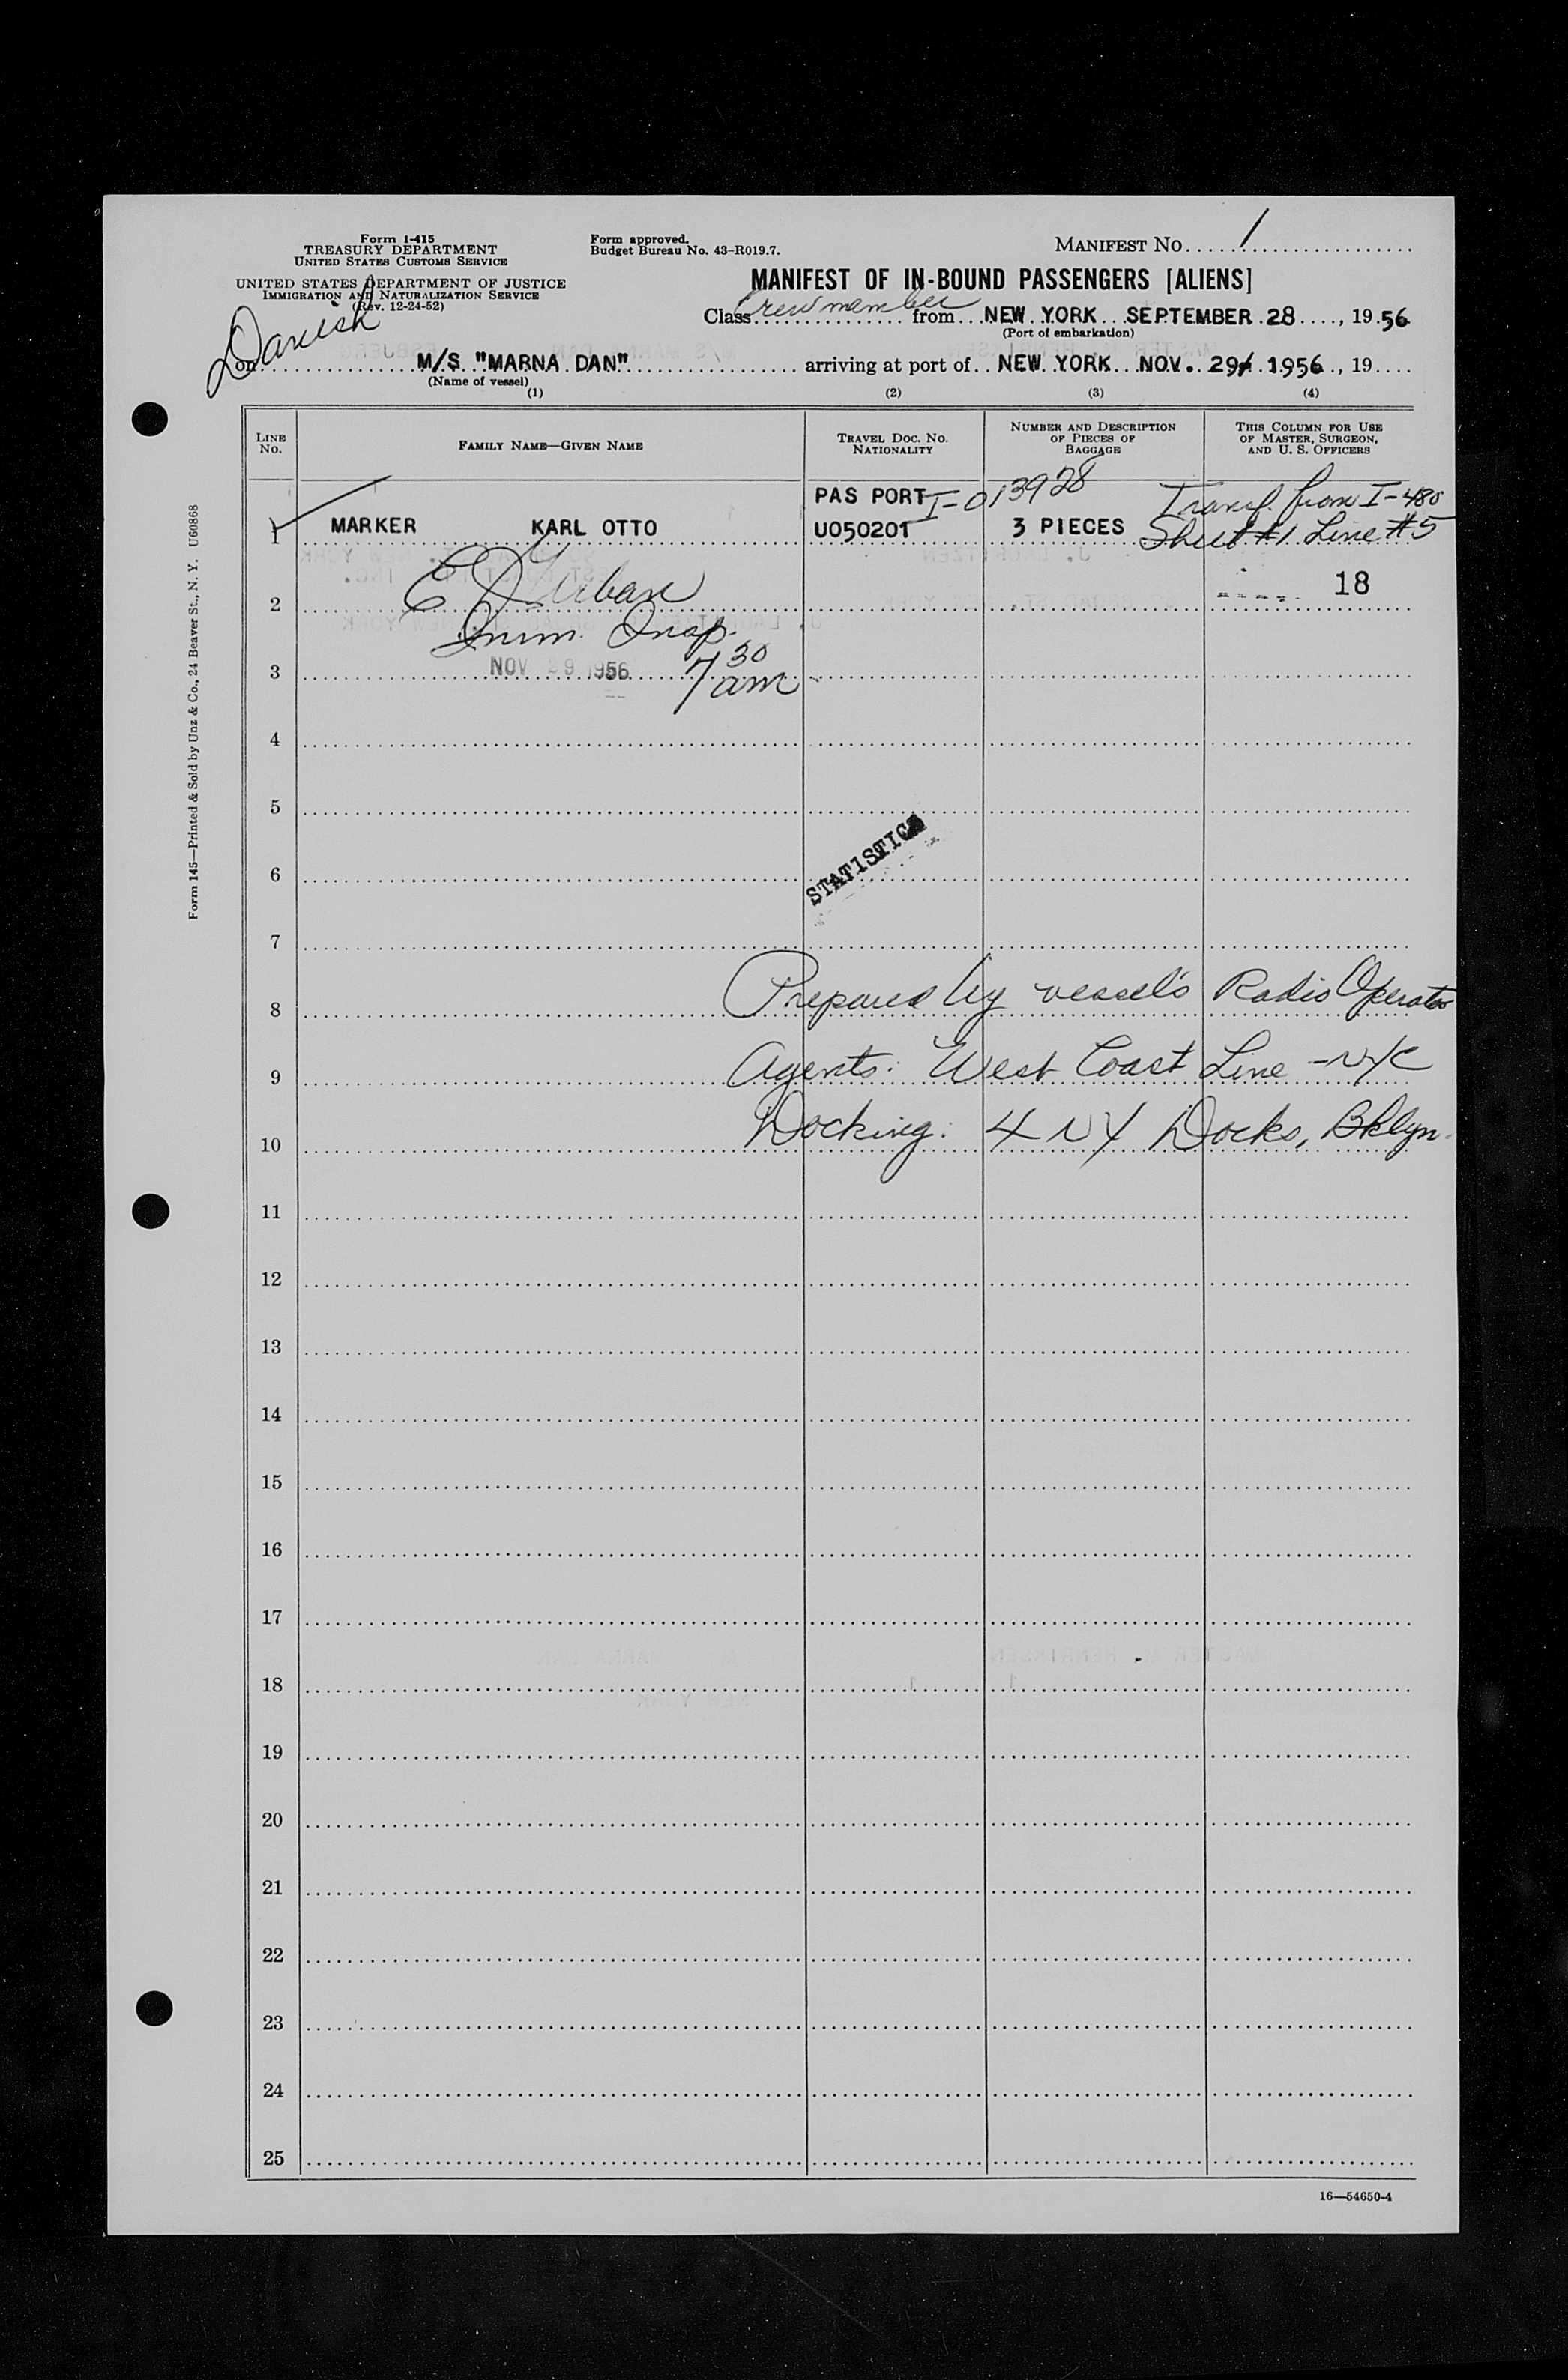 Form I-415
TREASURY DEPARTMENT
UNITED STATES CUSTOMS SERVICE
UNITED STATES DEPARTMENT OF JUSTICE
IMMIGRATION AND NATURALIZATION SERVICE
(Rev. 12-24-52)
Form approved.
Budget Bureau No. 43-R019.7.
MANIFEST NO. 1
MANIFEST OF IN-BOUND PASSENGERS [ALIENS]
Danish
Class Crewmember from NEW YORK SEPTEMBER 28, 1956
(Port of embarkation)
on M/S "MARNA DAN" arriving at port of NEW YORK NOV. 29 1956, 19
(Name of vessel)
(1) (2) (3) (4)
LINE NO.
FAMILY NAME—GIVEN NAME
TRAVEL DOC. NO. NATIONALITY
NUMBER AND DESCRIPTION OF PIECES OF BAGGAGE
THIS COLUMN FOR USE OF MASTER, SURGEON, AND U. S. OFFICERS
PAS PORT I-013928 Transf. from I-480
1 MARKER KARL OTTO U050201 3 PIECES Sheet #1 Line #5
2 Urban 18
Imm. Insp.
3 NOV 29 1956 7 30 am
4
5
6 STATISTICS
7
8 Prepared by vessel's Radio Operator
9 Agents: West Coast Line - NYC
10 Docking: 4 NY Docks, Bklyn.
11
12
13
14
15
16
17
18
19
20
21
22
23
24
25
16—54650-4
Form 145—Printed & Sold by Unz & Co., 24 Beaver St., N. Y. U60868